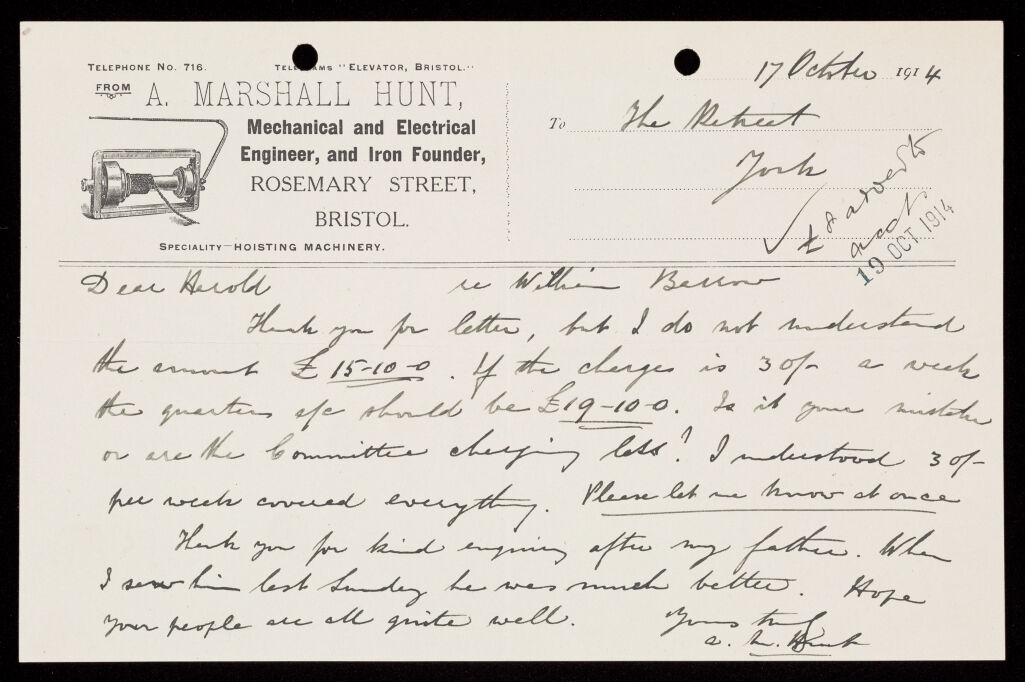 TELEPHONE NO. 716. TELEGRAMS "ELEVATOR, BRISTOL."
17 October 1914
FROM A. MARSHALL HUNT,
Mechanical and Electrical
Engineer, and Iron Founder,
ROSEMARY STREET,
BRISTOL.
SPECIALITY—HOISTING MACHINERY.
To The Retreat
York
19 OCT 1914
Dear Harold re William Barrow
Thank you for letter, but I do not understand
the amount £15-10-0. If the charges is 30/- a week
the quarters a/c should be £19-10-0. Is it your mistake
or are the Committee charging less? I understood 30/-
per week covered everything. Please let me know at once
Thank you for kind enquiry after my father. When
I saw him last Sunday he was much better. Hope
your people are all quite well. Yours truly
A. M. Hunt